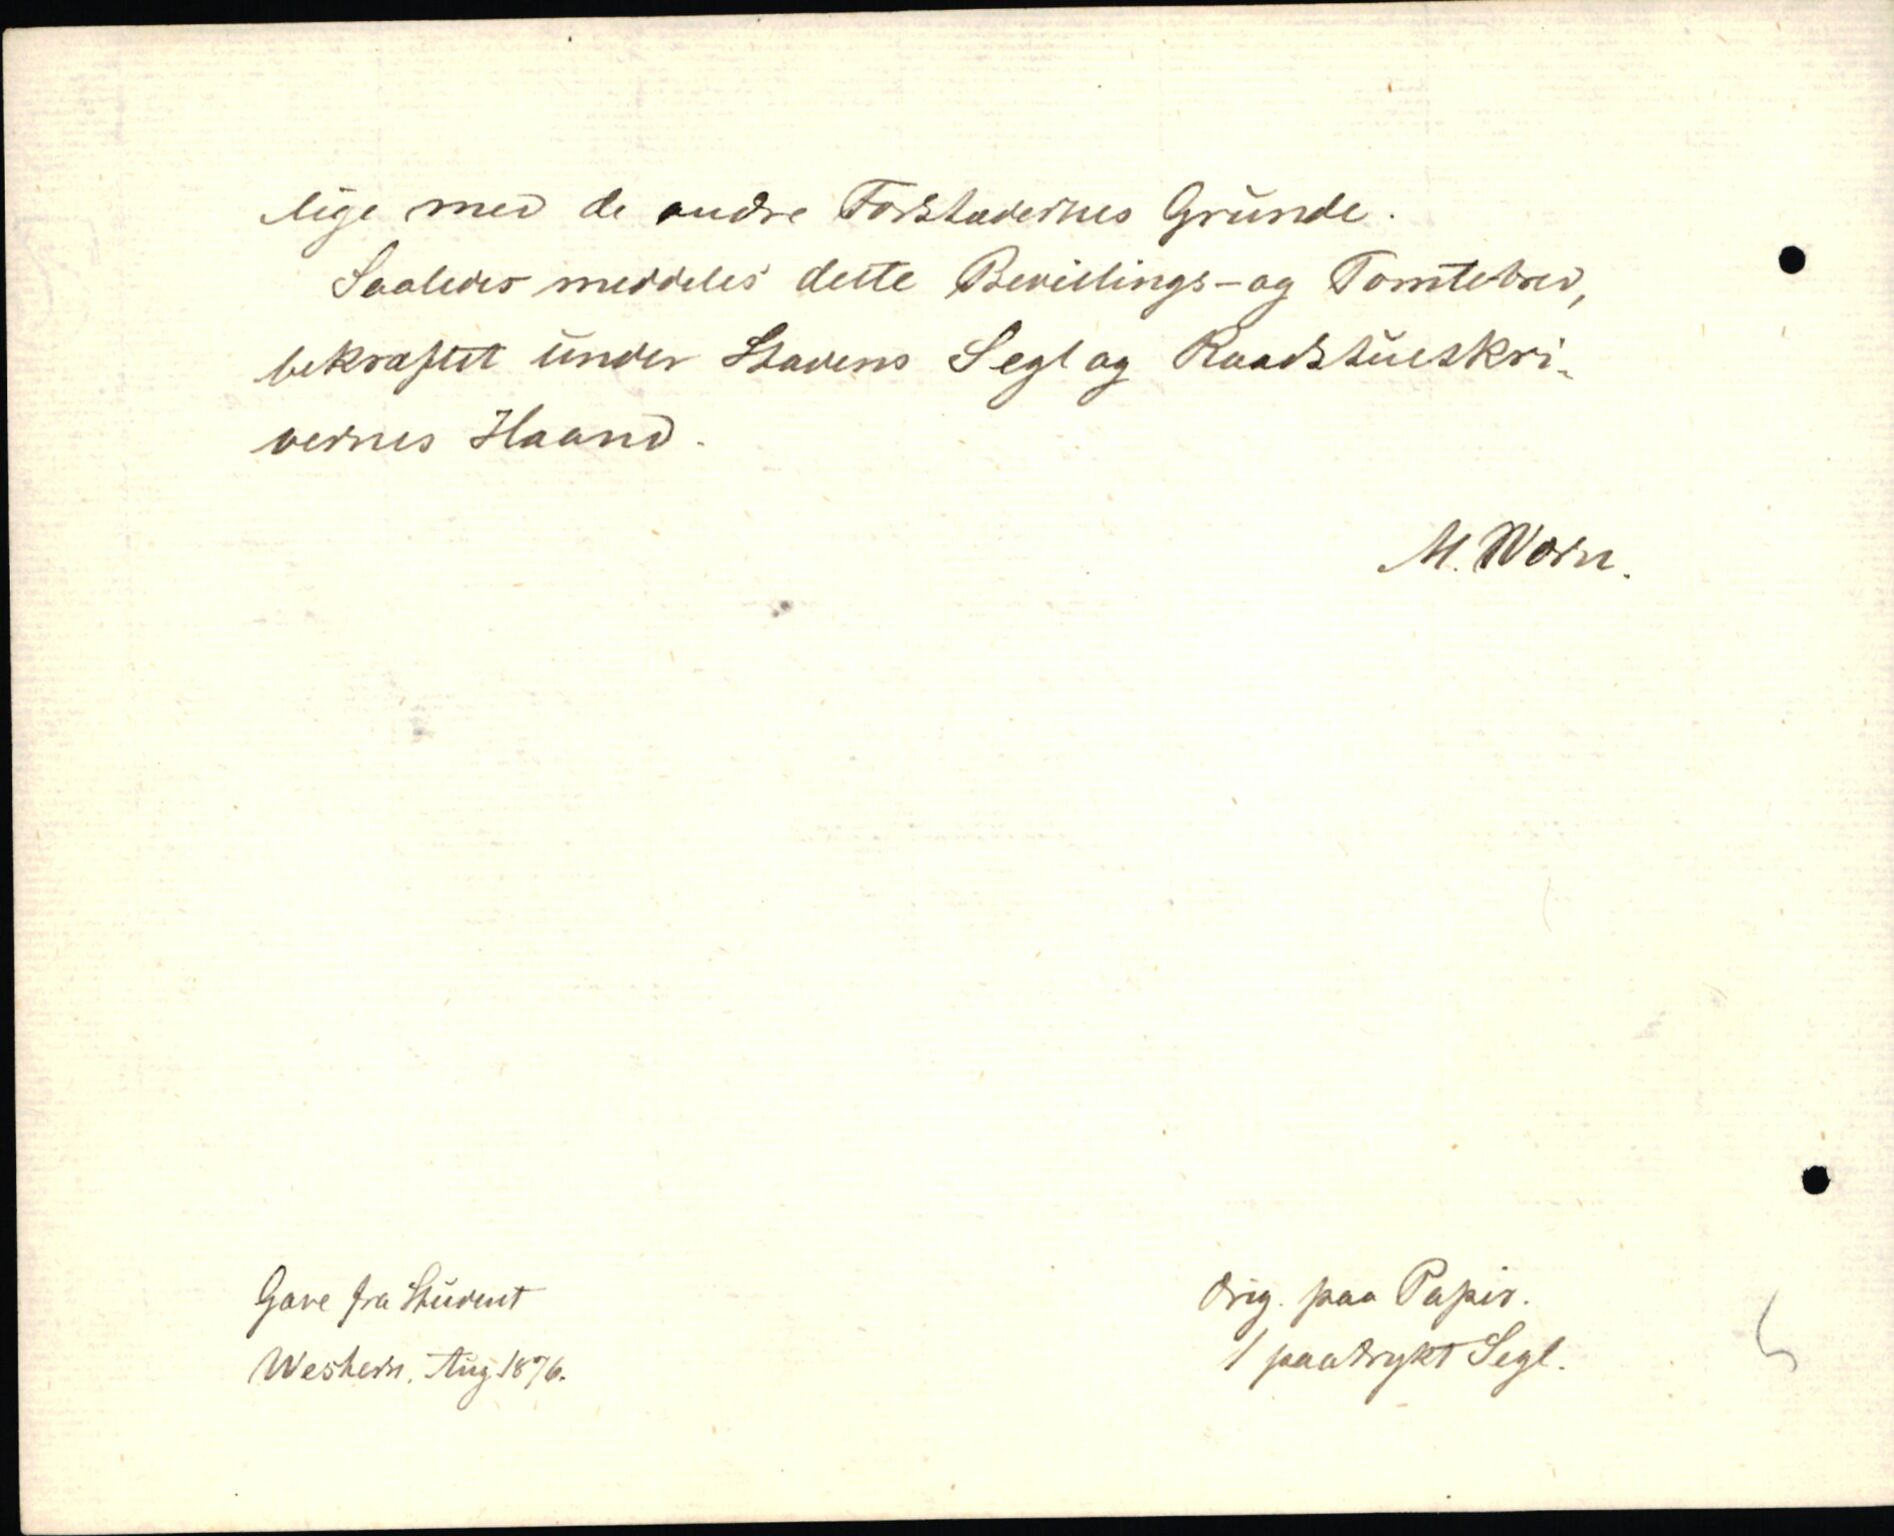 lige med de andre Forstadernes Grunde.
Saaledes meddeles dette Bevillings- og Tomtebrev,
bekraftet under Stadens Segl og Raadstueskri-
vernes Haand.
M. Worn.
Gave fra Student
Western. Aug 1876.
Orig. paa Papir.
1 paatrykt Segl.